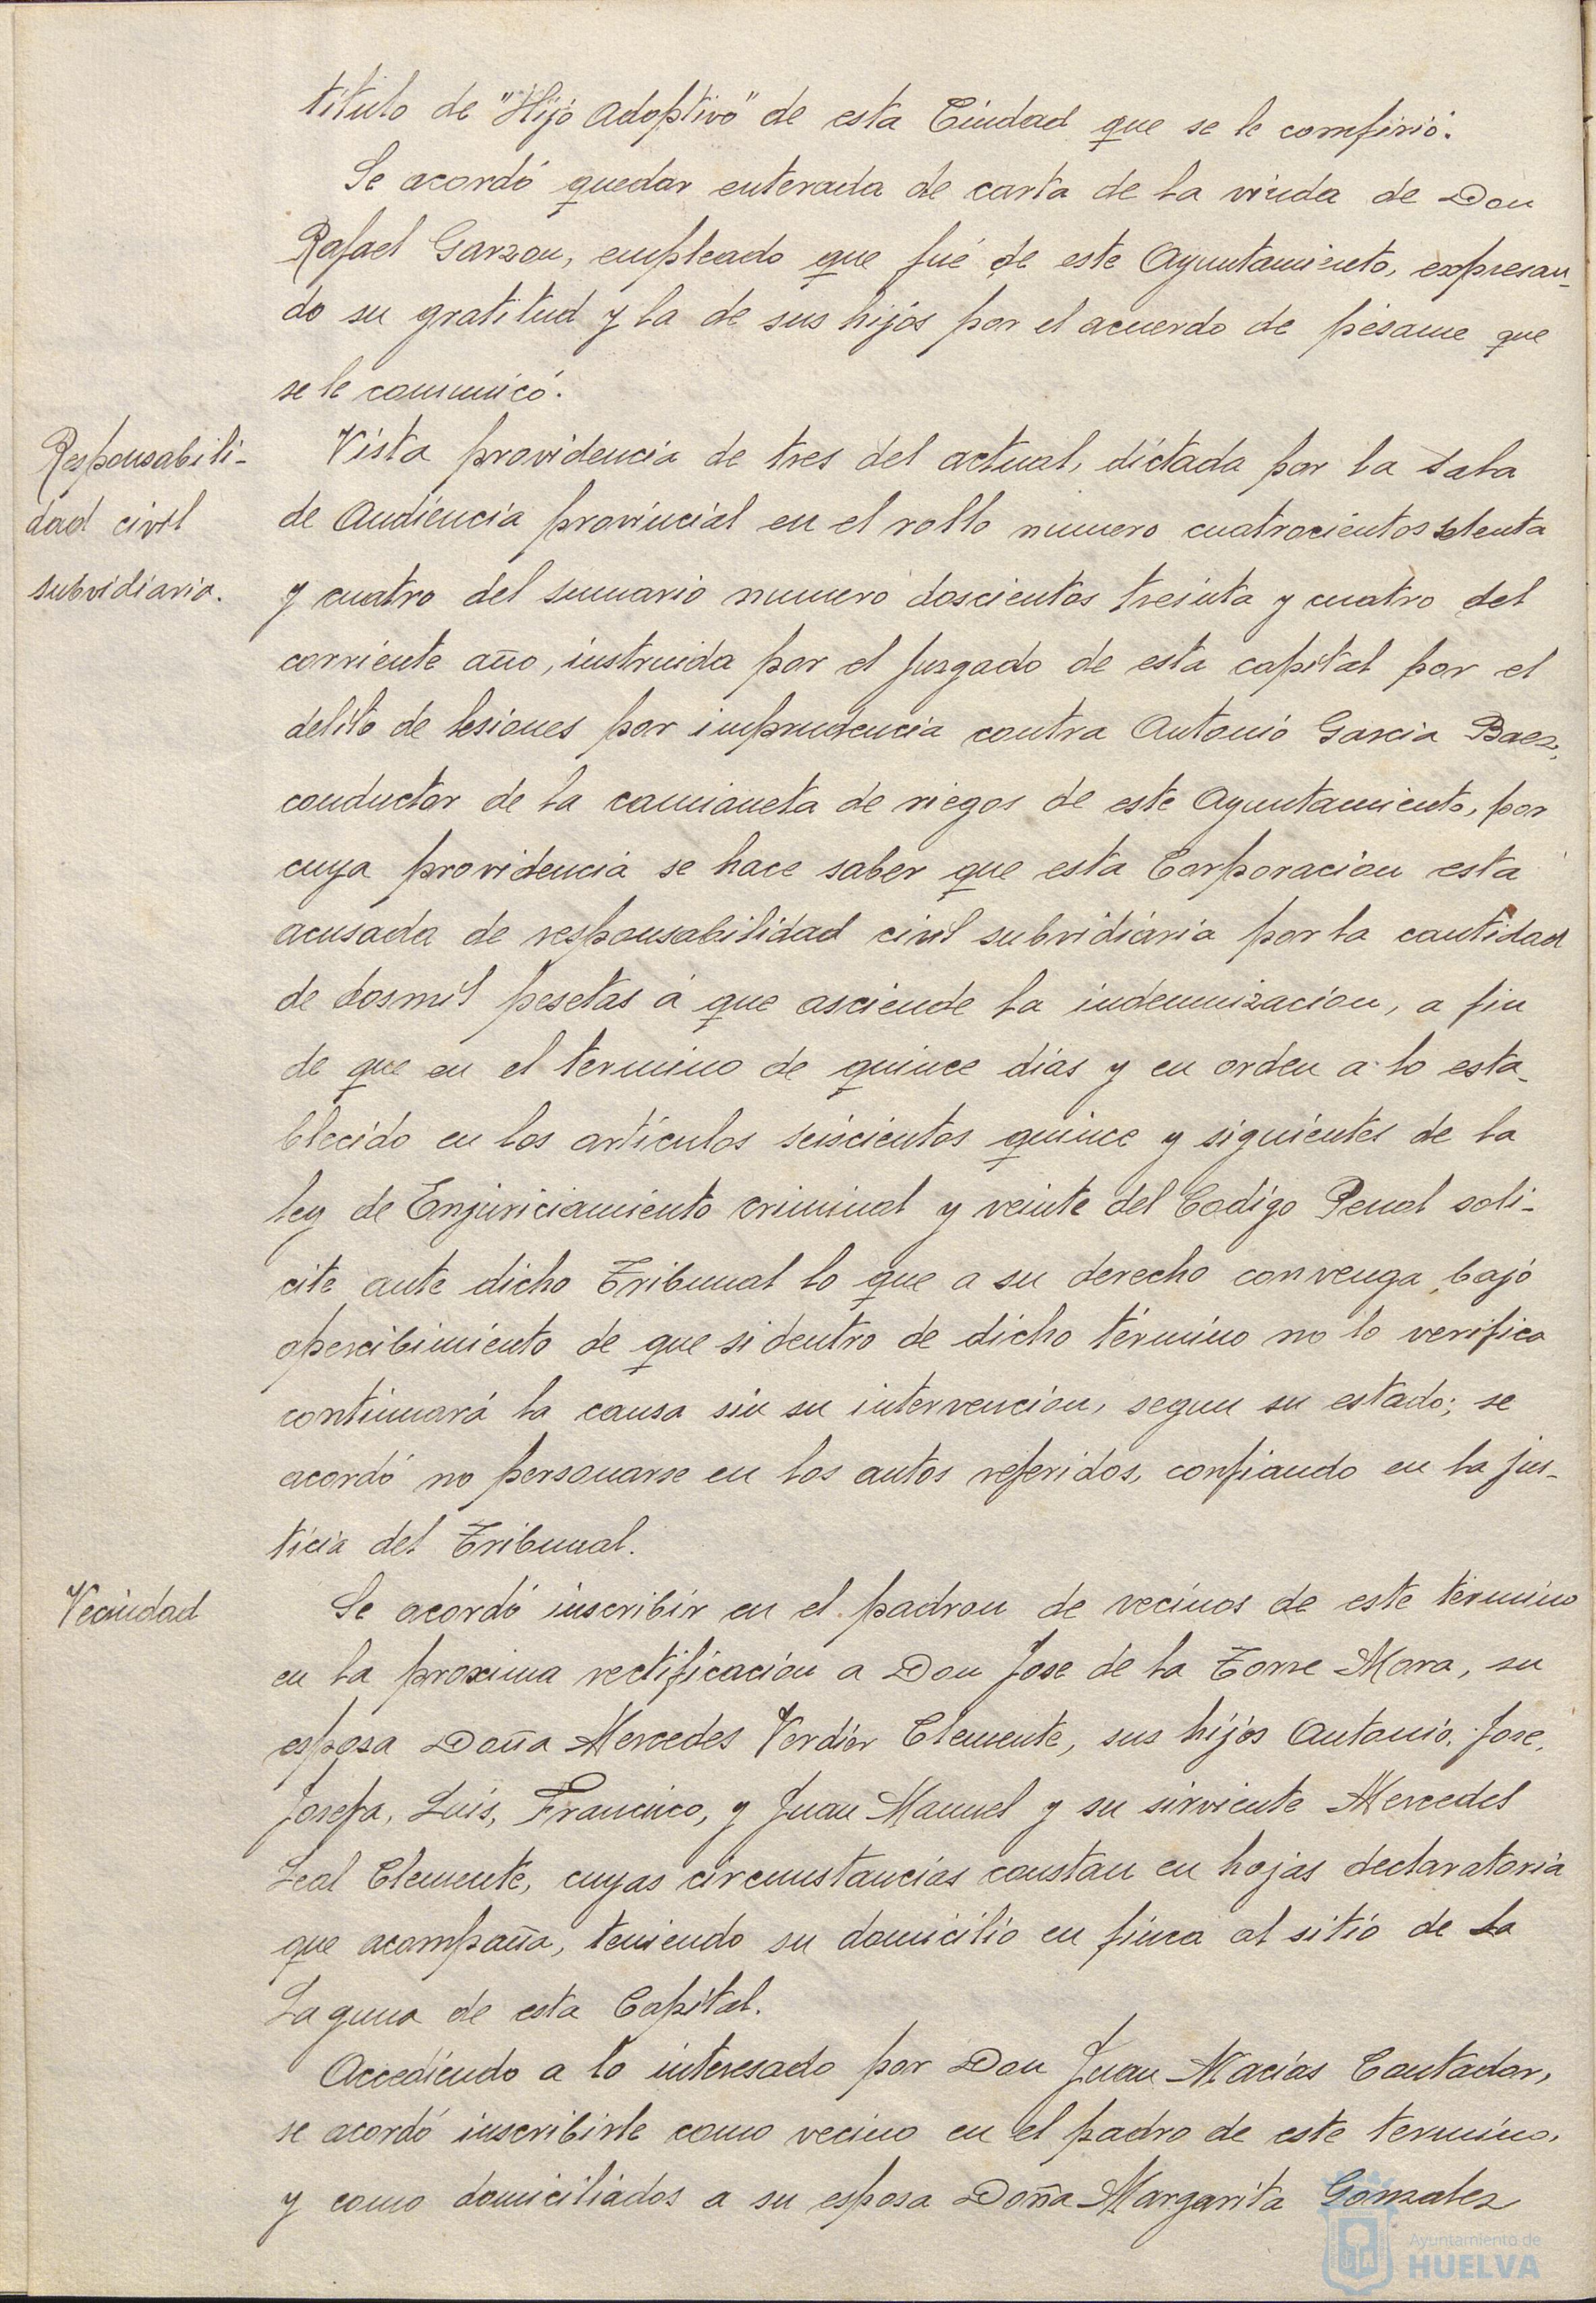 titulo de "Hijo Adoptivo" de esta Ciudad que se le comfirió.
Se acordó quedar enterada de carta de la viuda de Don
Rafael Garzon, empleado que fué de este Ayuntamiento, expresan-
do su gratitud y la de sus hijos por el acuerdo de pésame que
se le comunicó.
Responsabili-
dad civil
subvidiaria.
Vista providencia de tres del actual, dictada por la Sala
de Audiencia provincial en el rollo numero cuatrocientos setenta
y cuatro del sumario numero doscientos treinta y cuatro del
corriente año, instruida por el Juzgado de esta capital por el
delito de lesiones por imprudencia contra Antonio Garcia Baez,
conductor de la camianeta de riegos de este Ayuntamiento, por
cuya providencia se hace saber que esta Corporacion esta
acusada de responsabilidad civil subvidiaria por la cantidad
de dosmil pesetas á que asciende la indemnizacion, a fin
de que en el termino de quince dias y en orden a lo esta-
blecido en los articulos seiscientos quince y siguientes de la
ley de Enjuriciamiento criminal y veinte del Codigo Penal soli-
cite ante dicho Tribunal lo que a su derecho convenga, bajo
apercibimiento de que si dentro de dicho término no lo verifica
continuará la causa sin su intervencion, segun su estado; se
acordó no personarse en los autos referidos, confiando en la jus-
ticia del Tribunal.
Vecindad
Se acordó inscribir en el padron de vecinos de este termino
en la proxima rectificacion a Don Jose de la Torre Mora, su
esposa Doña Mercedes Verdier Clemente, sus hijos Antonio, Jose,
Josefa, Luis, Francisco, y Juan Manuel y su sirviente Mercedes
Leal Clemente, cuyas circunstancias constan en hojas declaratoria
que acompaña, teniendo su domicilio en finca al sitio de La
Laguna de esta Capital.
Accediendo a lo interesado por Don Juan Macias Contador,
se acordó inscribirle como vecino en el padro de este termino,
y como domiciliados a su esposa Doña Margarita Gonzalez
Ayuntamiento de
HUELVA